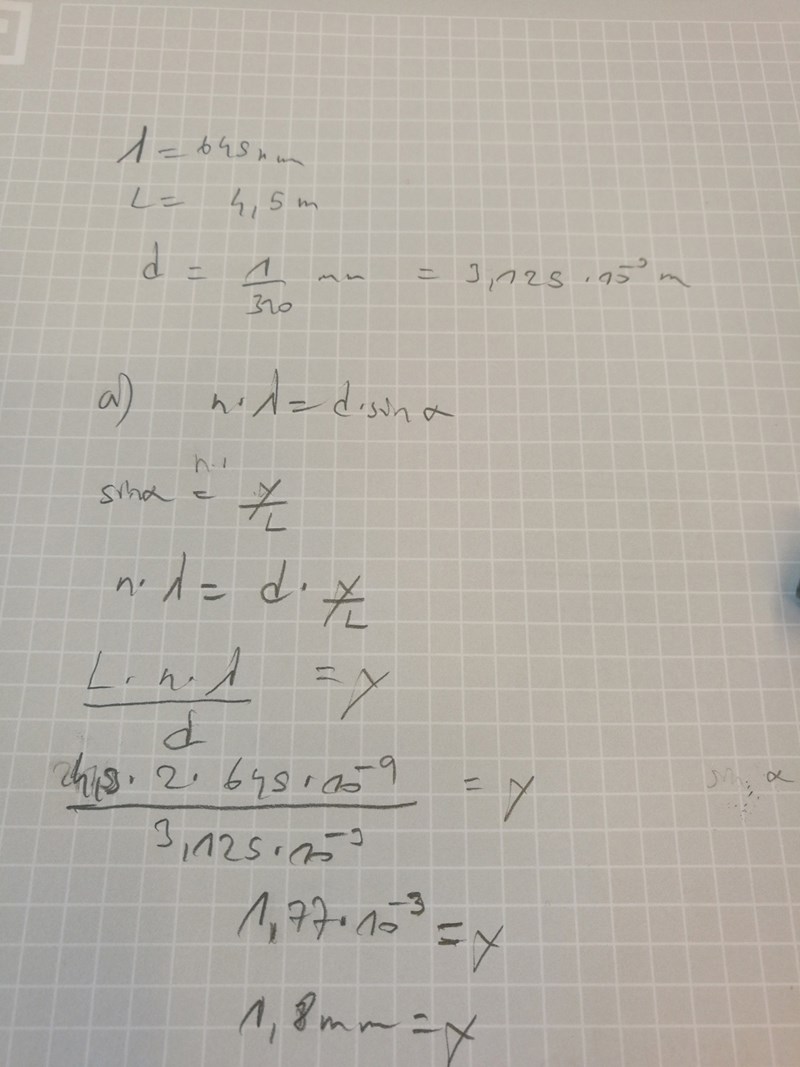 λ = 645 nm
L = 4,5 m
d = 1/320 mm = 3,125 · 10⁻³ m
a) n · λ = d · sin α
n ·
sin α = y/L
n · λ = d · y/L
L · n · λ / d = y
4,5 · 2 · 645 · 10⁻⁹ / 3,125 · 10⁻³ = y
sin α
1,77 · 10⁻³ = y
1,8 mm = y